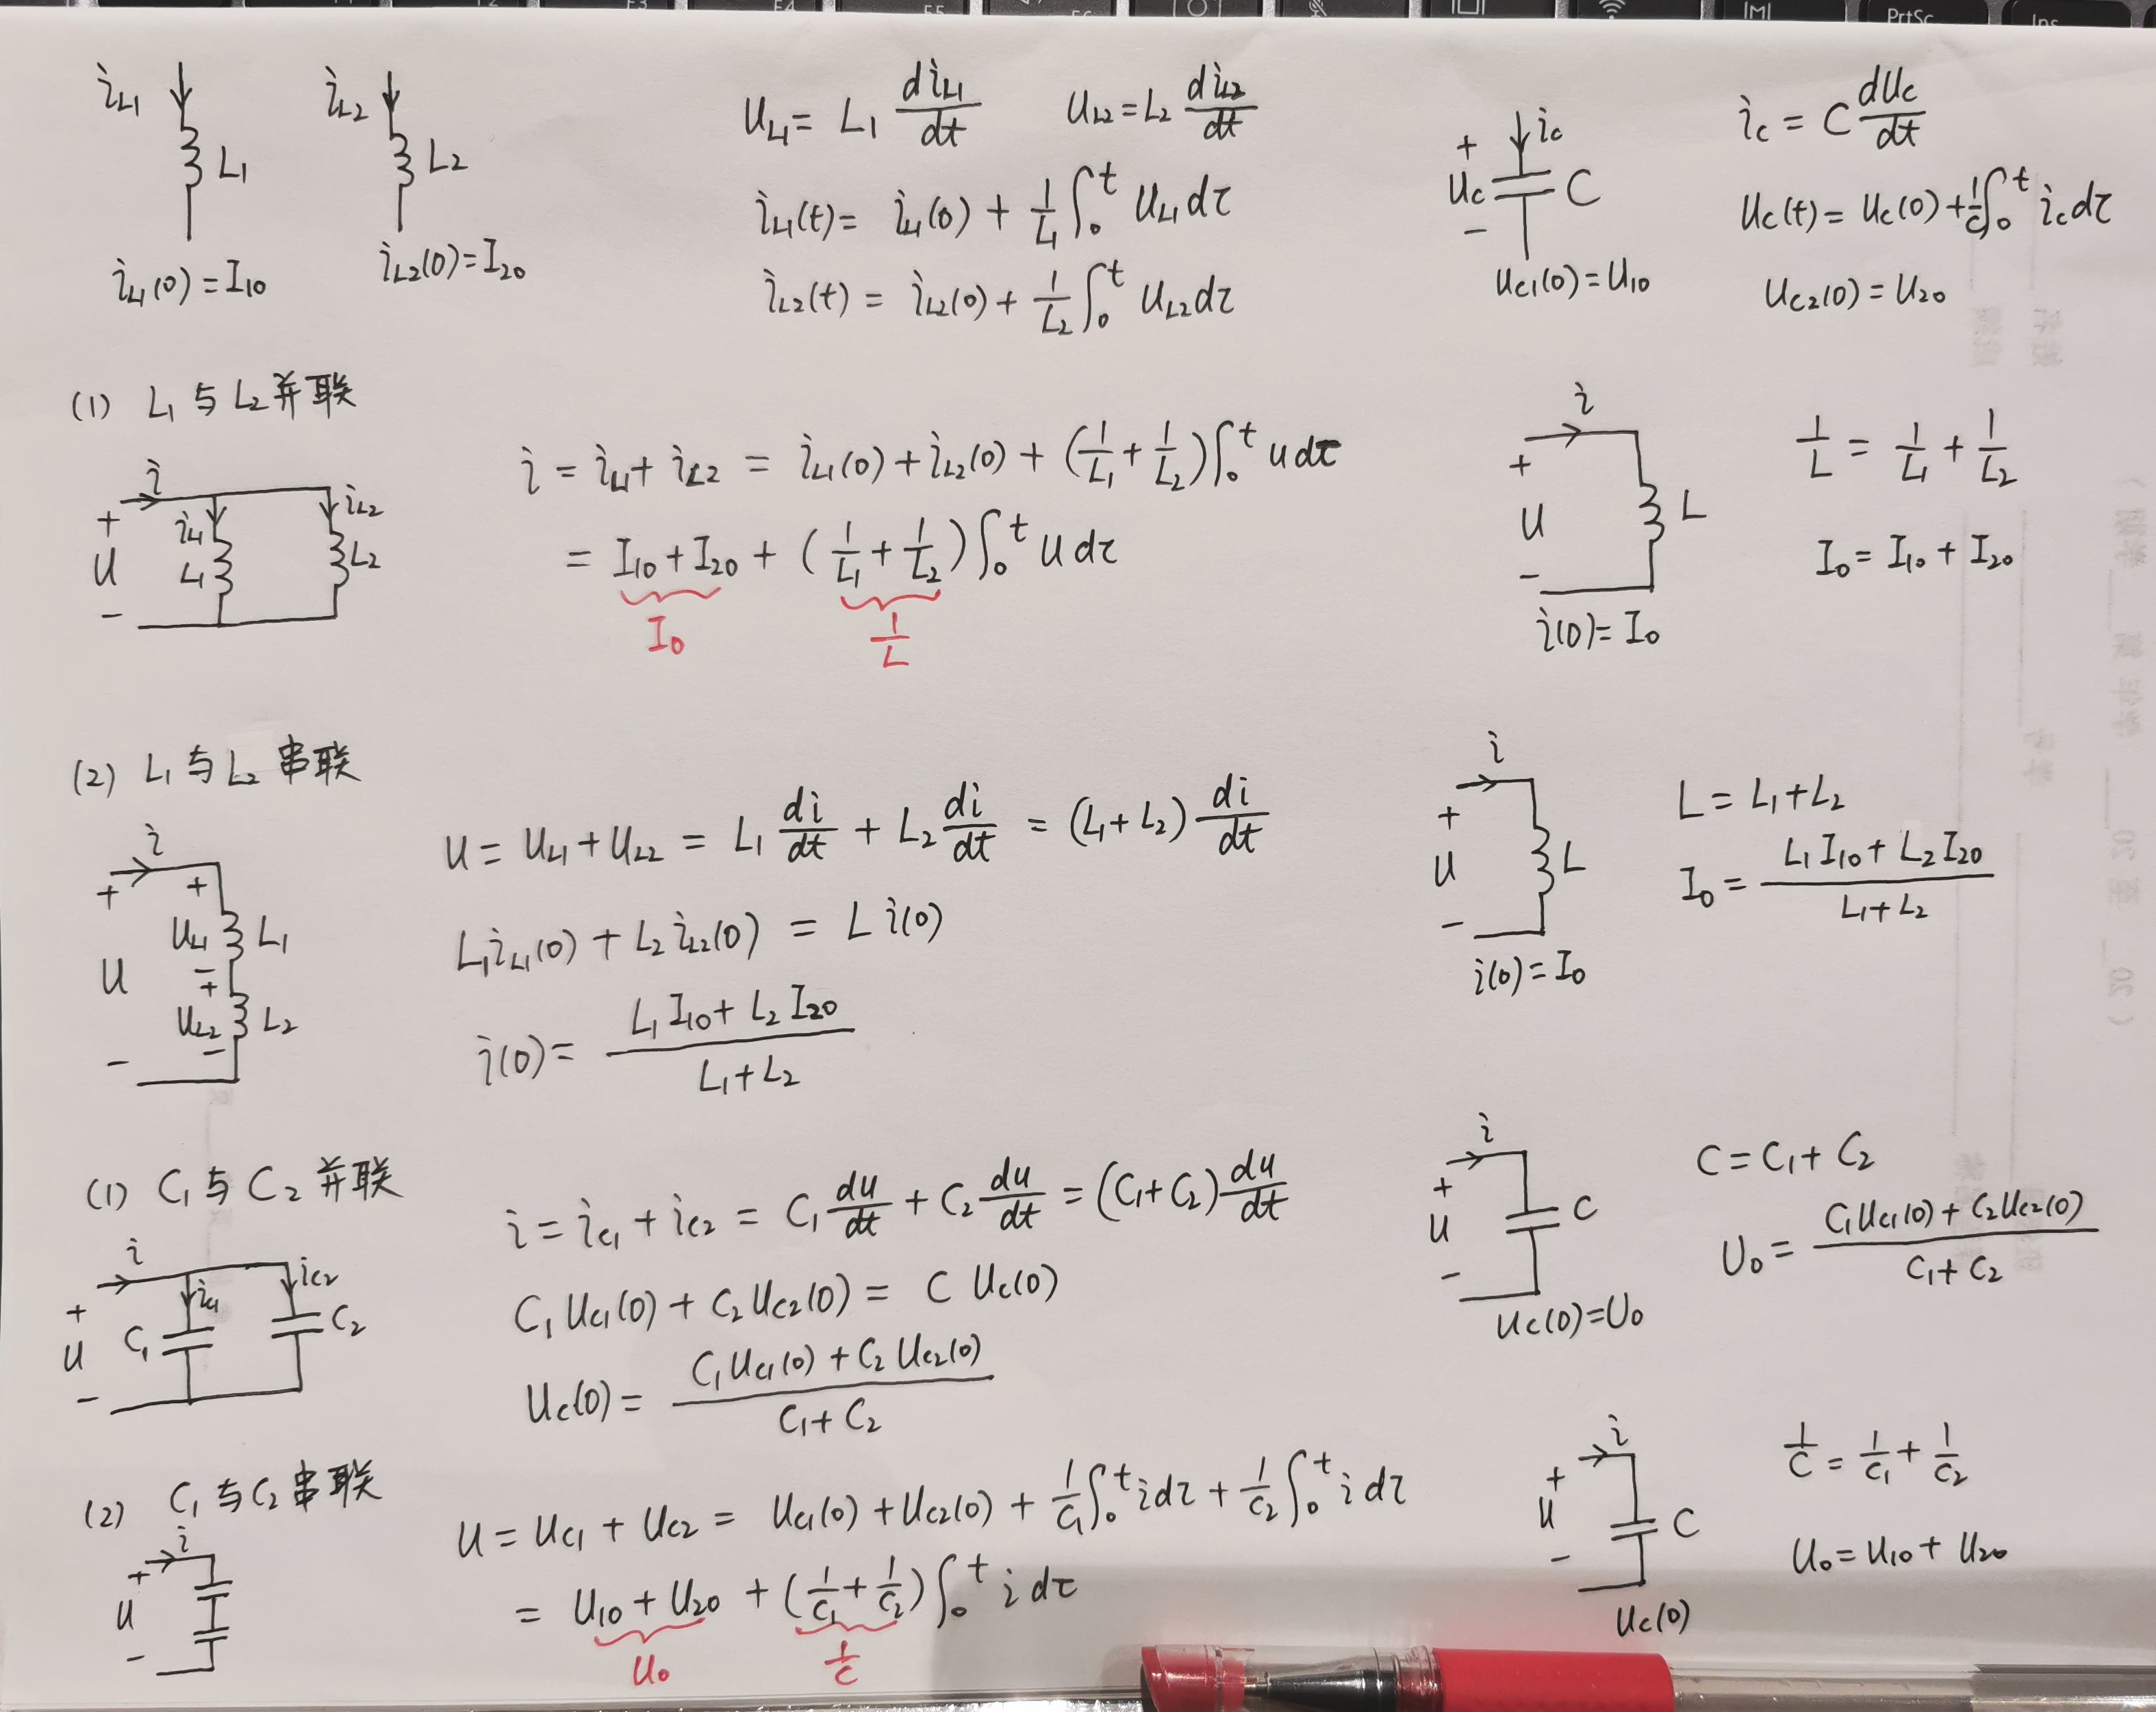 F3 F4 F5 PrtSc Ins
i_{L1} i_{L2} L_1 L_2
i_{L1}(0) = I_{10} i_{L2}(0) = I_{20}
u_{L1} = L_1 \frac{di_{L1}}{dt} u_{L2} = L_2 \frac{di_{L2}}{dt}
i_{L1}(t) = i_{L1}(0) + \frac{1}{L_1} ∫_0^t u_{L1} dτ
i_{L2}(t) = i_{L2}(0) + \frac{1}{L_2} ∫_0^t u_{L2} dτ
+ u_c - i_c C
i_c = C \frac{du_c}{dt}
u_c(t) = u_c(0) + \frac{1}{C} ∫_0^t i_c dτ
u_{c1}(0) = U_{10} u_{c2}(0) = U_{20}
(1) L_1 与 L_2 并联
i + u - i_{L1} L_1 i_{L2} L_2
i = i_{L1} + i_{L2} = i_{L1}(0) + i_{L2}(0) + (\frac{1}{L_1} + \frac{1}{L_2}) ∫_0^t u dτ
= I_{10} + I_{20} + (\frac{1}{L_1} + \frac{1}{L_2}) ∫_0^t u dτ
I_0 \frac{1}{L}
i + u - L
i(0) = I_0
\frac{1}{L} = \frac{1}{L_1} + \frac{1}{L_2}
I_0 = I_{10} + I_{20}
(2) L_1 与 L_2 串联
i + u - + u_{L1} - L_1 + u_{L2} - L_2
u = u_{L1} + u_{L2} = L_1 \frac{di}{dt} + L_2 \frac{di}{dt} = (L_1 + L_2) \frac{di}{dt}
L_1 i_{L1}(0) + L_2 i_{L2}(0) = L i(0)
i(0) = \frac{L_1 I_{10} + L_2 I_{20}}{L_1 + L_2}
i + u - L
i(0) = I_0
L = L_1 + L_2
I_0 = \frac{L_1 I_{10} + L_2 I_{20}}{L_1 + L_2}
(1) C_1 与 C_2 并联
i + u - i_{c1} C_1 i_{c2} C_2
i = i_{c1} + i_{c2} = C_1 \frac{du}{dt} + C_2 \frac{du}{dt} = (C_1 + C_2) \frac{du}{dt}
C_1 u_{c1}(0) + C_2 u_{c2}(0) = C u_c(0)
u_c(0) = \frac{C_1 u_{c1}(0) + C_2 u_{c2}(0)}{C_1 + C_2}
i + u - C
u_c(0) = U_0
C = C_1 + C_2
U_0 = \frac{C_1 u_{c1}(0) + C_2 u_{c2}(0)}{C_1 + C_2}
(2) C_1 与 C_2 串联
i + u -
u = u_{c1} + u_{c2} = u_{c1}(0) + u_{c2}(0) + \frac{1}{C_1} ∫_0^t i dτ + \frac{1}{C_2} ∫_0^t i dτ
= U_{10} + U_{20} + (\frac{1}{C_1} + \frac{1}{C_2}) ∫_0^t i dτ
U_0 \frac{1}{C}
i + u - C
u_c(0)
\frac{1}{C} = \frac{1}{C_1} + \frac{1}{C_2}
U_0 = U_{10} + U_{20}